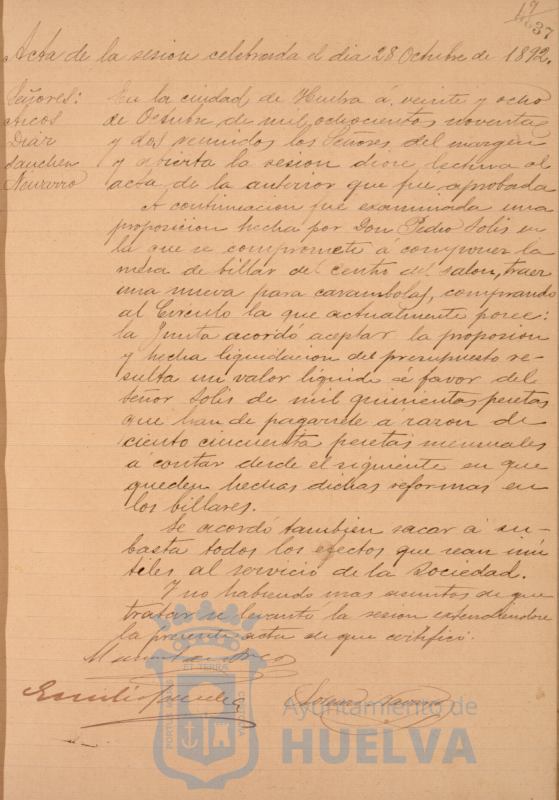 17
37
Acta de la sesion celebrada el dia 28 Octubre de 1892.
Señores:
Arcos
Diaz
Sanchez
Navarro
En la ciudad de Huelva á veinte y ocho
de Octubre de mil ochocientos noventa
y dos reunidos los Señores del margen
y abierta la sesion diose lectura al
acta de la anterior que fue aprobada
A continuacion fue examinada una
proposicion hecha por Don Pedro Solis en
la que se compromete á componer la
mesa de billar del centro del salon, traer
una nueva para carambolas, comprando
al Circulo la que actualmente posee:
la Junta acordó aceptar la proposion
y hecha liquidacion del presupuesto re-
sulta un valor liquido á favor del
Señor Solis de mil quinientas pesetas
que han de pagarsele á razon de
ciento cincuenta pesetas mensuales
á contar desde el siguiente en que
queden hechas dichas reformas en
los billares.
Se acordó tambien sacar á su-
basta todos los efectos que sean inu
tiles al servicio de la Sociedad.
Y no habiendo mas asuntos de que
tratar se levantó la sesion extendiendose
la presente acta de que certifico.
Emilio Sanchez
Navarro
PORTUS MARIS ET TERRAE CUSTODIA
Ayuntamiento de
HUELVA